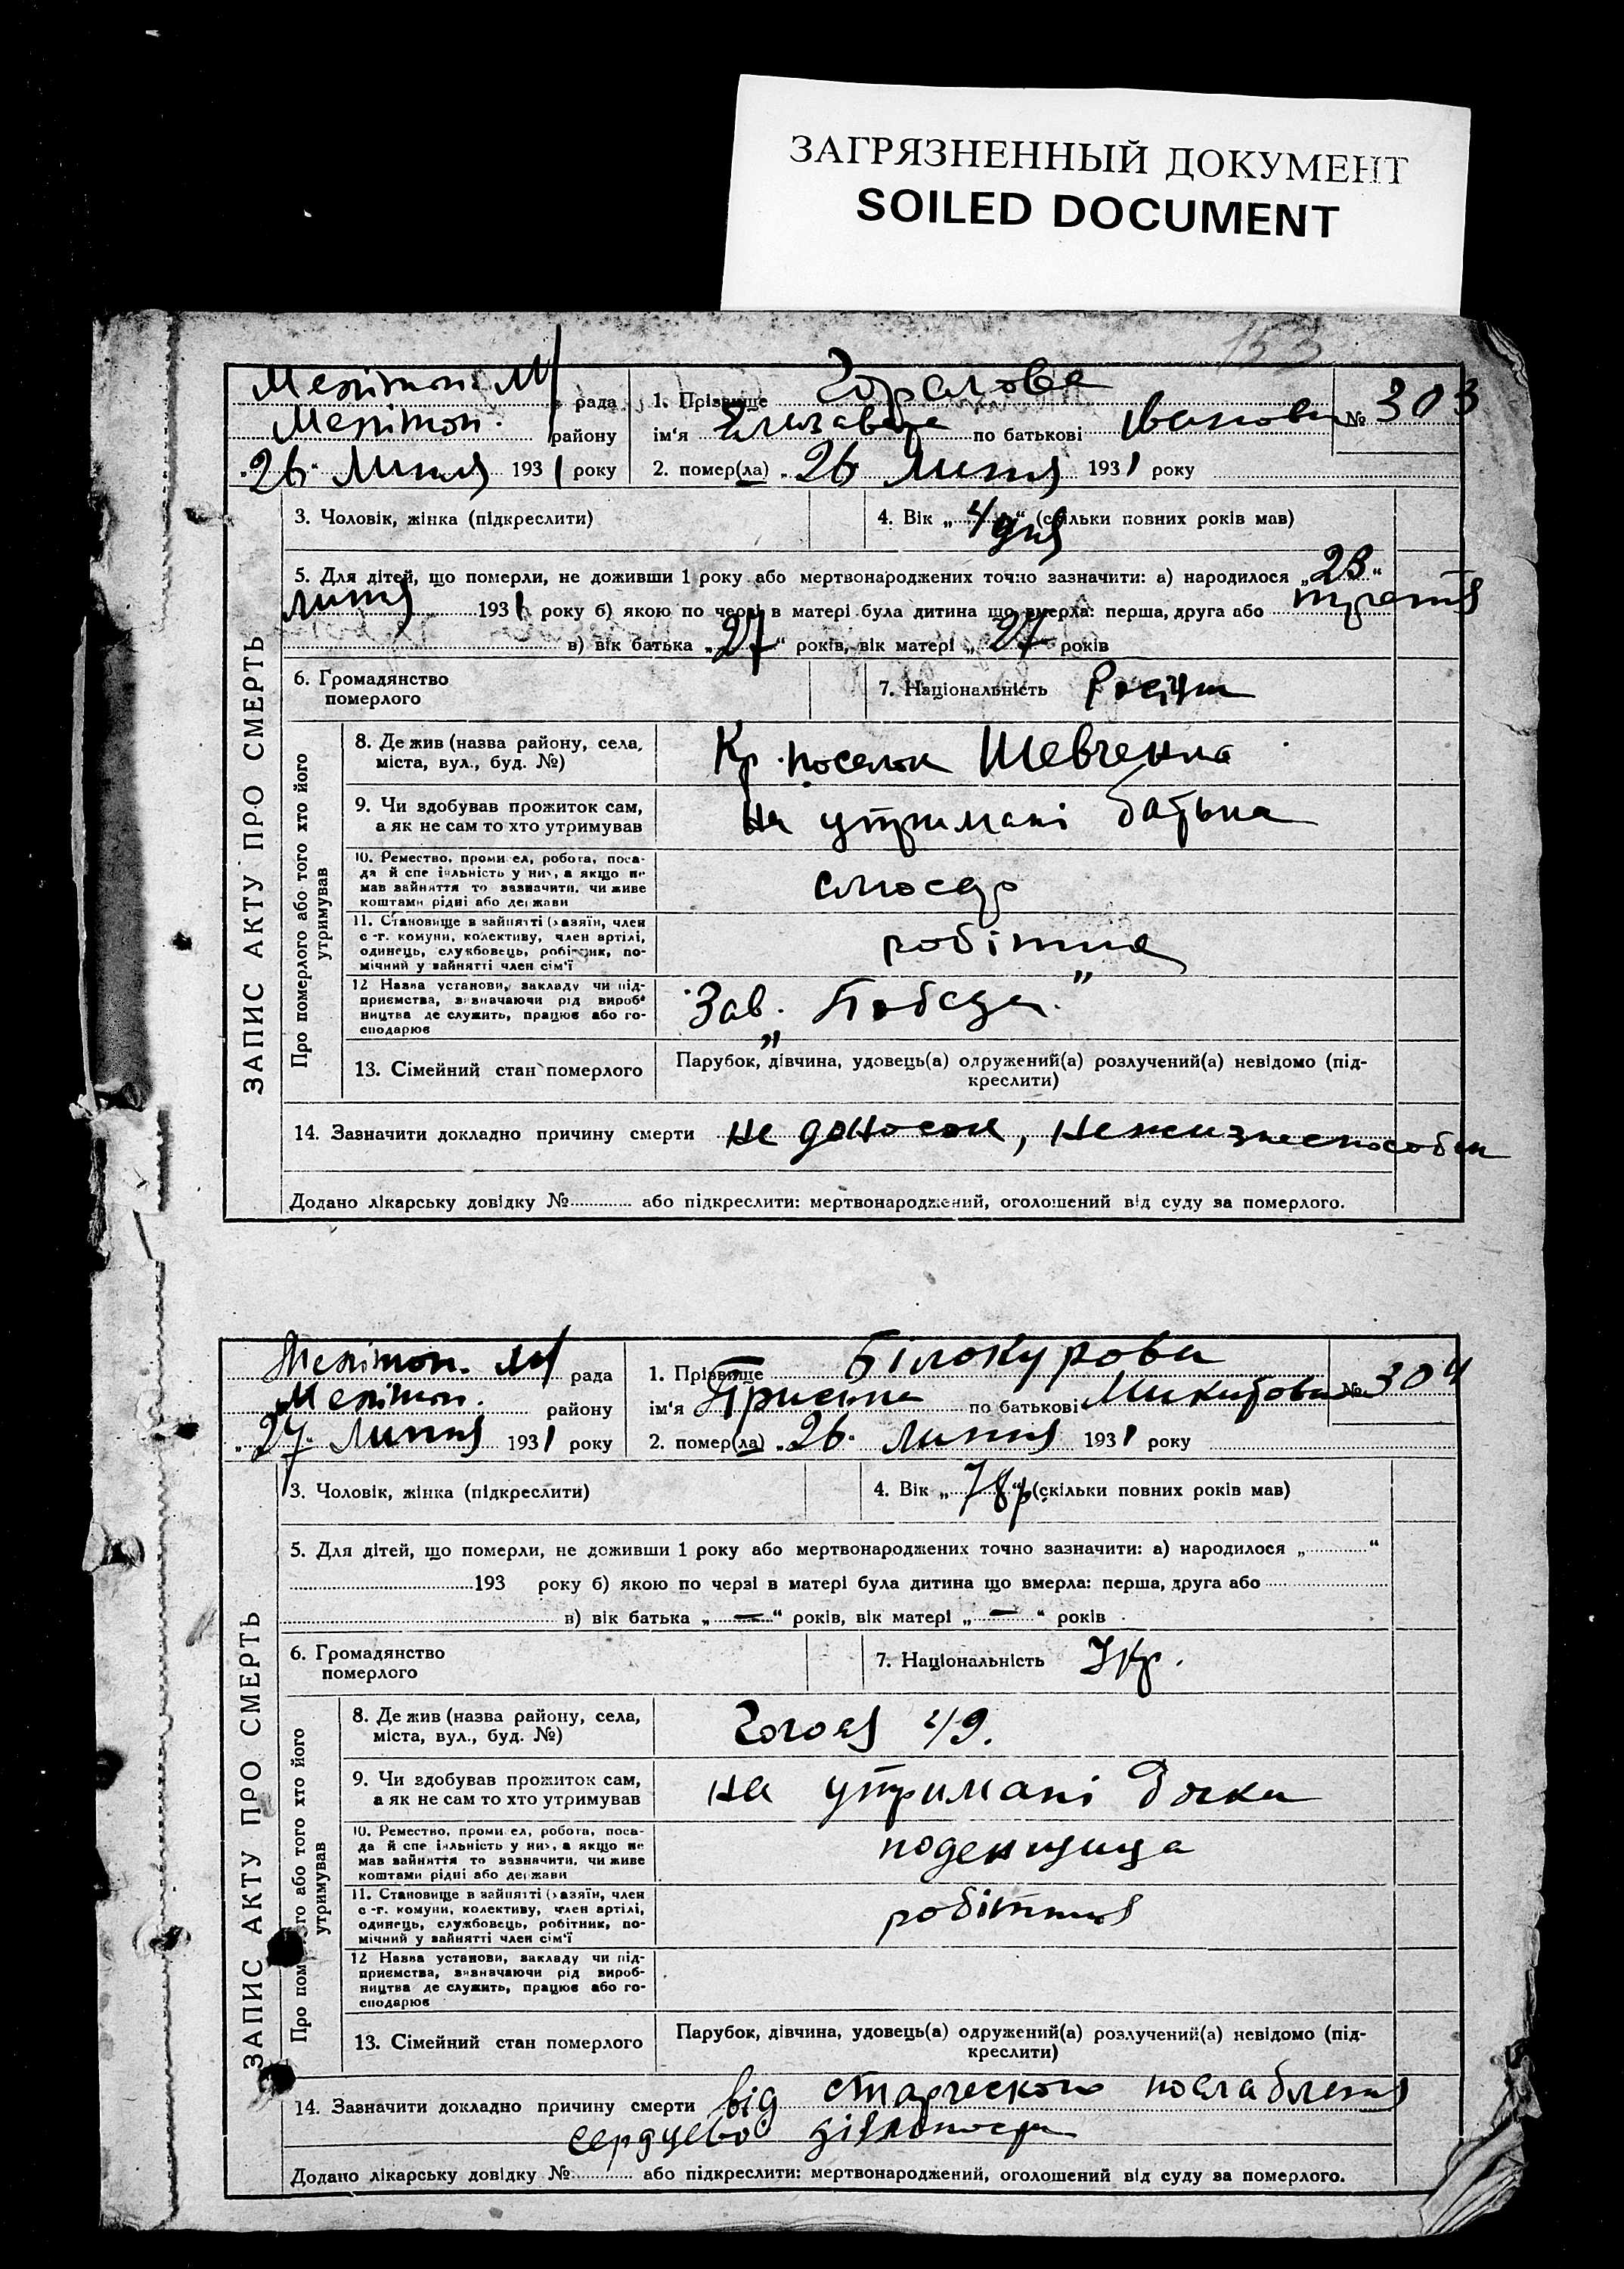 ЗАГРЯЗНЕННЫЙ ДОКУМЕНТ
SOILED DOCUMENT
153
Мелітоп. М/ рада
Мелітоп. району
„26“ Липня 1931 року
1. Прізвище
ім'я Елизавета по батькові Івановна
№ 303
2. помер(ла) „26 Липня 1931 року
3. Чоловік, жінка (підкреслити)
4. Вік „4 дня“ (скільки повних років мав)
5. Для дітей, що померли, не доживши 1 року або мертвонароджених точно зазначити: а) народилося „23“
липня 1931 року б) якою по черзі в матері була дитина що вмерла: перша, друга або третя
в) вік батька „27“ років, вік матері „27“ років
6. Громадянство померлого
7. Національність
ЗАПИС АКТУ ПРО СМЕРТЬ
Про померлого або того хто його утримував
8. Де жив (назва району, села, міста, вул., буд. №)
Кр. поселок Шевченка
9. Чи здобував прожиток сам, а як не сам то хто утримував
на утримані батька
10. Ремество, промисел, робота, посада й спеціяльність у них, а якщо не мав зайняття то зазначити, чи живе коштами рідні або держави
слюсар
11. Становище в зайнятті (хазяїн, член с.-г. комуни, колективу, член артілі, одинець, службовець, робітник, помічний у зайнятті член сім'ї
робітник
12 Назва установи, закладу чи підприємства, визначаючи рід виробництва де служить, працює або господарює
Зав. „Победа“
13. Сімейний стан померлого
Парубок, дівчина, удовець(а) одружений(а) розлучений(а) невідомо (підкреслити)
14. Зазначити докладно причину смерти не доносок, нежизнеспособн
Додано лікарську довідку № або підкреслити: мертвонароджений, оголошений від суду за померлого.
Мелітоп. М/ рада
Мелітоп. району
„27“ Липня 1931 року
1. Прізвище Білокурова
ім'я по батькові Микитовна
№ 304
2. помер(ла) „26 Липня 1931 року
3. Чоловік, жінка (підкреслити)
4. Вік „78 р“ (скільки повних років мав)
5. Для дітей, що померли, не доживши 1 року або мертвонароджених точно зазначити: а) народилося „ “
193 року б) якою по черзі в матері була дитина що вмерла: перша, друга або
в) вік батька „—“ років, вік матері „—“ років
6. Громадянство померлого
7. Національність Укр.
ЗАПИС АКТУ ПРО СМЕРТЬ
Про пом ого або того хто його утримував
8. Де жив (назва району, села, міста, вул., буд. №)
Гоголя 49.
9. Чи здобував прожиток сам, а як не сам то хто утримував
на утримані дочки
10. Ремество, промисел, робота, посада й спеціяльність у них, а якщо не мав зайняття то зазначити, чи живе коштами рідні або держави
поденщица
11. Становище в зайнятті (хазяїн, член с.-г. комуни, колективу, член артілі, одинець, службовець, робітник, помічний у зайнятті член сім'ї
робітниця
12 Назва установи, закладу чи підприємства, визначаючи рід виробництва де служить, працює або господарює
13. Сімейний стан померлого
Парубок, дівчина, удовець(а) одружений(а) розлучений(а) невідомо (підкреслити)
14. Зазначити докладно причину смерти від старческого послаблення
сердцево діяльности
Додано лікарську довідку № або підкреслити: мертвонароджений, оголошений від суду за померлого.